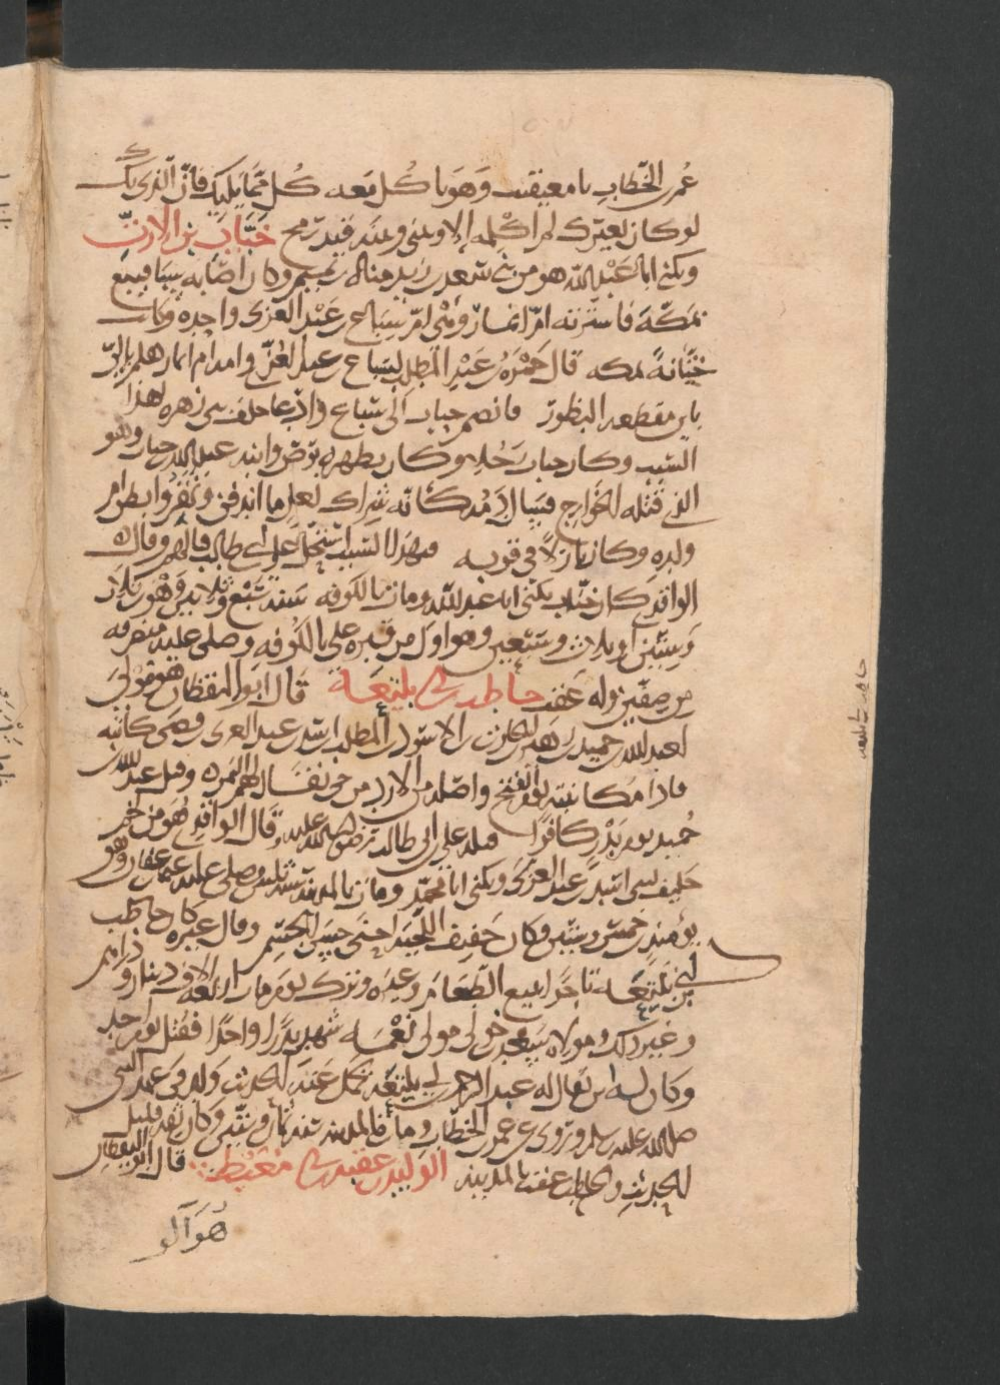 عمر بن الخطاب يا معيقيب وهو ياكل معه كل مما يليك فان الذى بك
لو كان بغيرك لم اكلمه الا وبينى وبينه قيد رمح خباب بن الارت
ويكنى ابا عبد الله هو من بنى سعد بن زيد مناة بن تميم وكان اصابه سبا فبيع
بمكة فاشترته ام انمار وهى ام سباع بن عبد العزى واحده وكانت
ختانة بمكه قال حمزة بن عبد المطلب لسباع بن عبد العزى وامه ام انمار هلم الى
يابن مقطعه البظور فانضم خباب الى ال سباع وادعا حلف بنى زهره لهذا
السبب وكان خباب رجلا وكان بظهره برص وابنه عبد الله بن خباب وهو
الذى قتله الخوارج فسال دمه كانه شراك نعل ما ابذقر وبقروا بطن ام
ولده وكان نازلا فى قريه فبهذا السبب استحل على بن ابى طالب قتالهم وقال
الواقدى كان خباب يكنى ابا عبد الله ومات بالكوفه سنة سبع وثلاثين وهو ابن ثلاث
وستين او ثلاث وسبعين وهو اول من قبره على بالكوفه وصلى عليه منصرفه
من صفين وله عقب حاطب بن ابى بلتعة قال ابو اليقظان هو مولى
لعبيد الله بن حميد بن زهير بن الحارث بن الاسود بن المطلب بن اسد بن عبد العزى وهى كاتبه
فادا مكاتبته يوم الفتح واصله من الازد من حى يقال لهم النمره وقتل عبد الله بن
حميد يوم بدر كافرا قتله على بن ابى طالب رضى الله عليه وقال الواقدى هو من لخم
حليف بنى اسد بن عبد العزى ويكنى ابا محمد ومات بالمدينة سنة ثلثين وصلى عليه عثمان بن عفان وهو
يومئذ ابن خمس وستين وكان خفيف اللحية اجنى حسن الجسم وقال غيره كان حاطب
بن ابى بلتعه تاجرا يبيع الطعام وغيره وترك يوم مات اربعة الاف دينار ودراهم
وغير ذلك ومولاه سعد بن خولى مولى نعمه شهد بدرا واحدا فقتل يوم احد
وكان له ابن يقال له عبد الرحمن بن ابى بلتعة تحمل عنه الحديث ولد فى عهد النبى
صلى الله عليه وسلم وروى عن عمر بن الخطاب ومات فالمدينه سنة ثمان وستين وكان ثقه قليل
الحديث ولحاطب عقب بالمدينه الوليد بن عقبة بن ابى معيط قال ابو اليقظان
هو ابو
حاطب بن ابى بلتعه